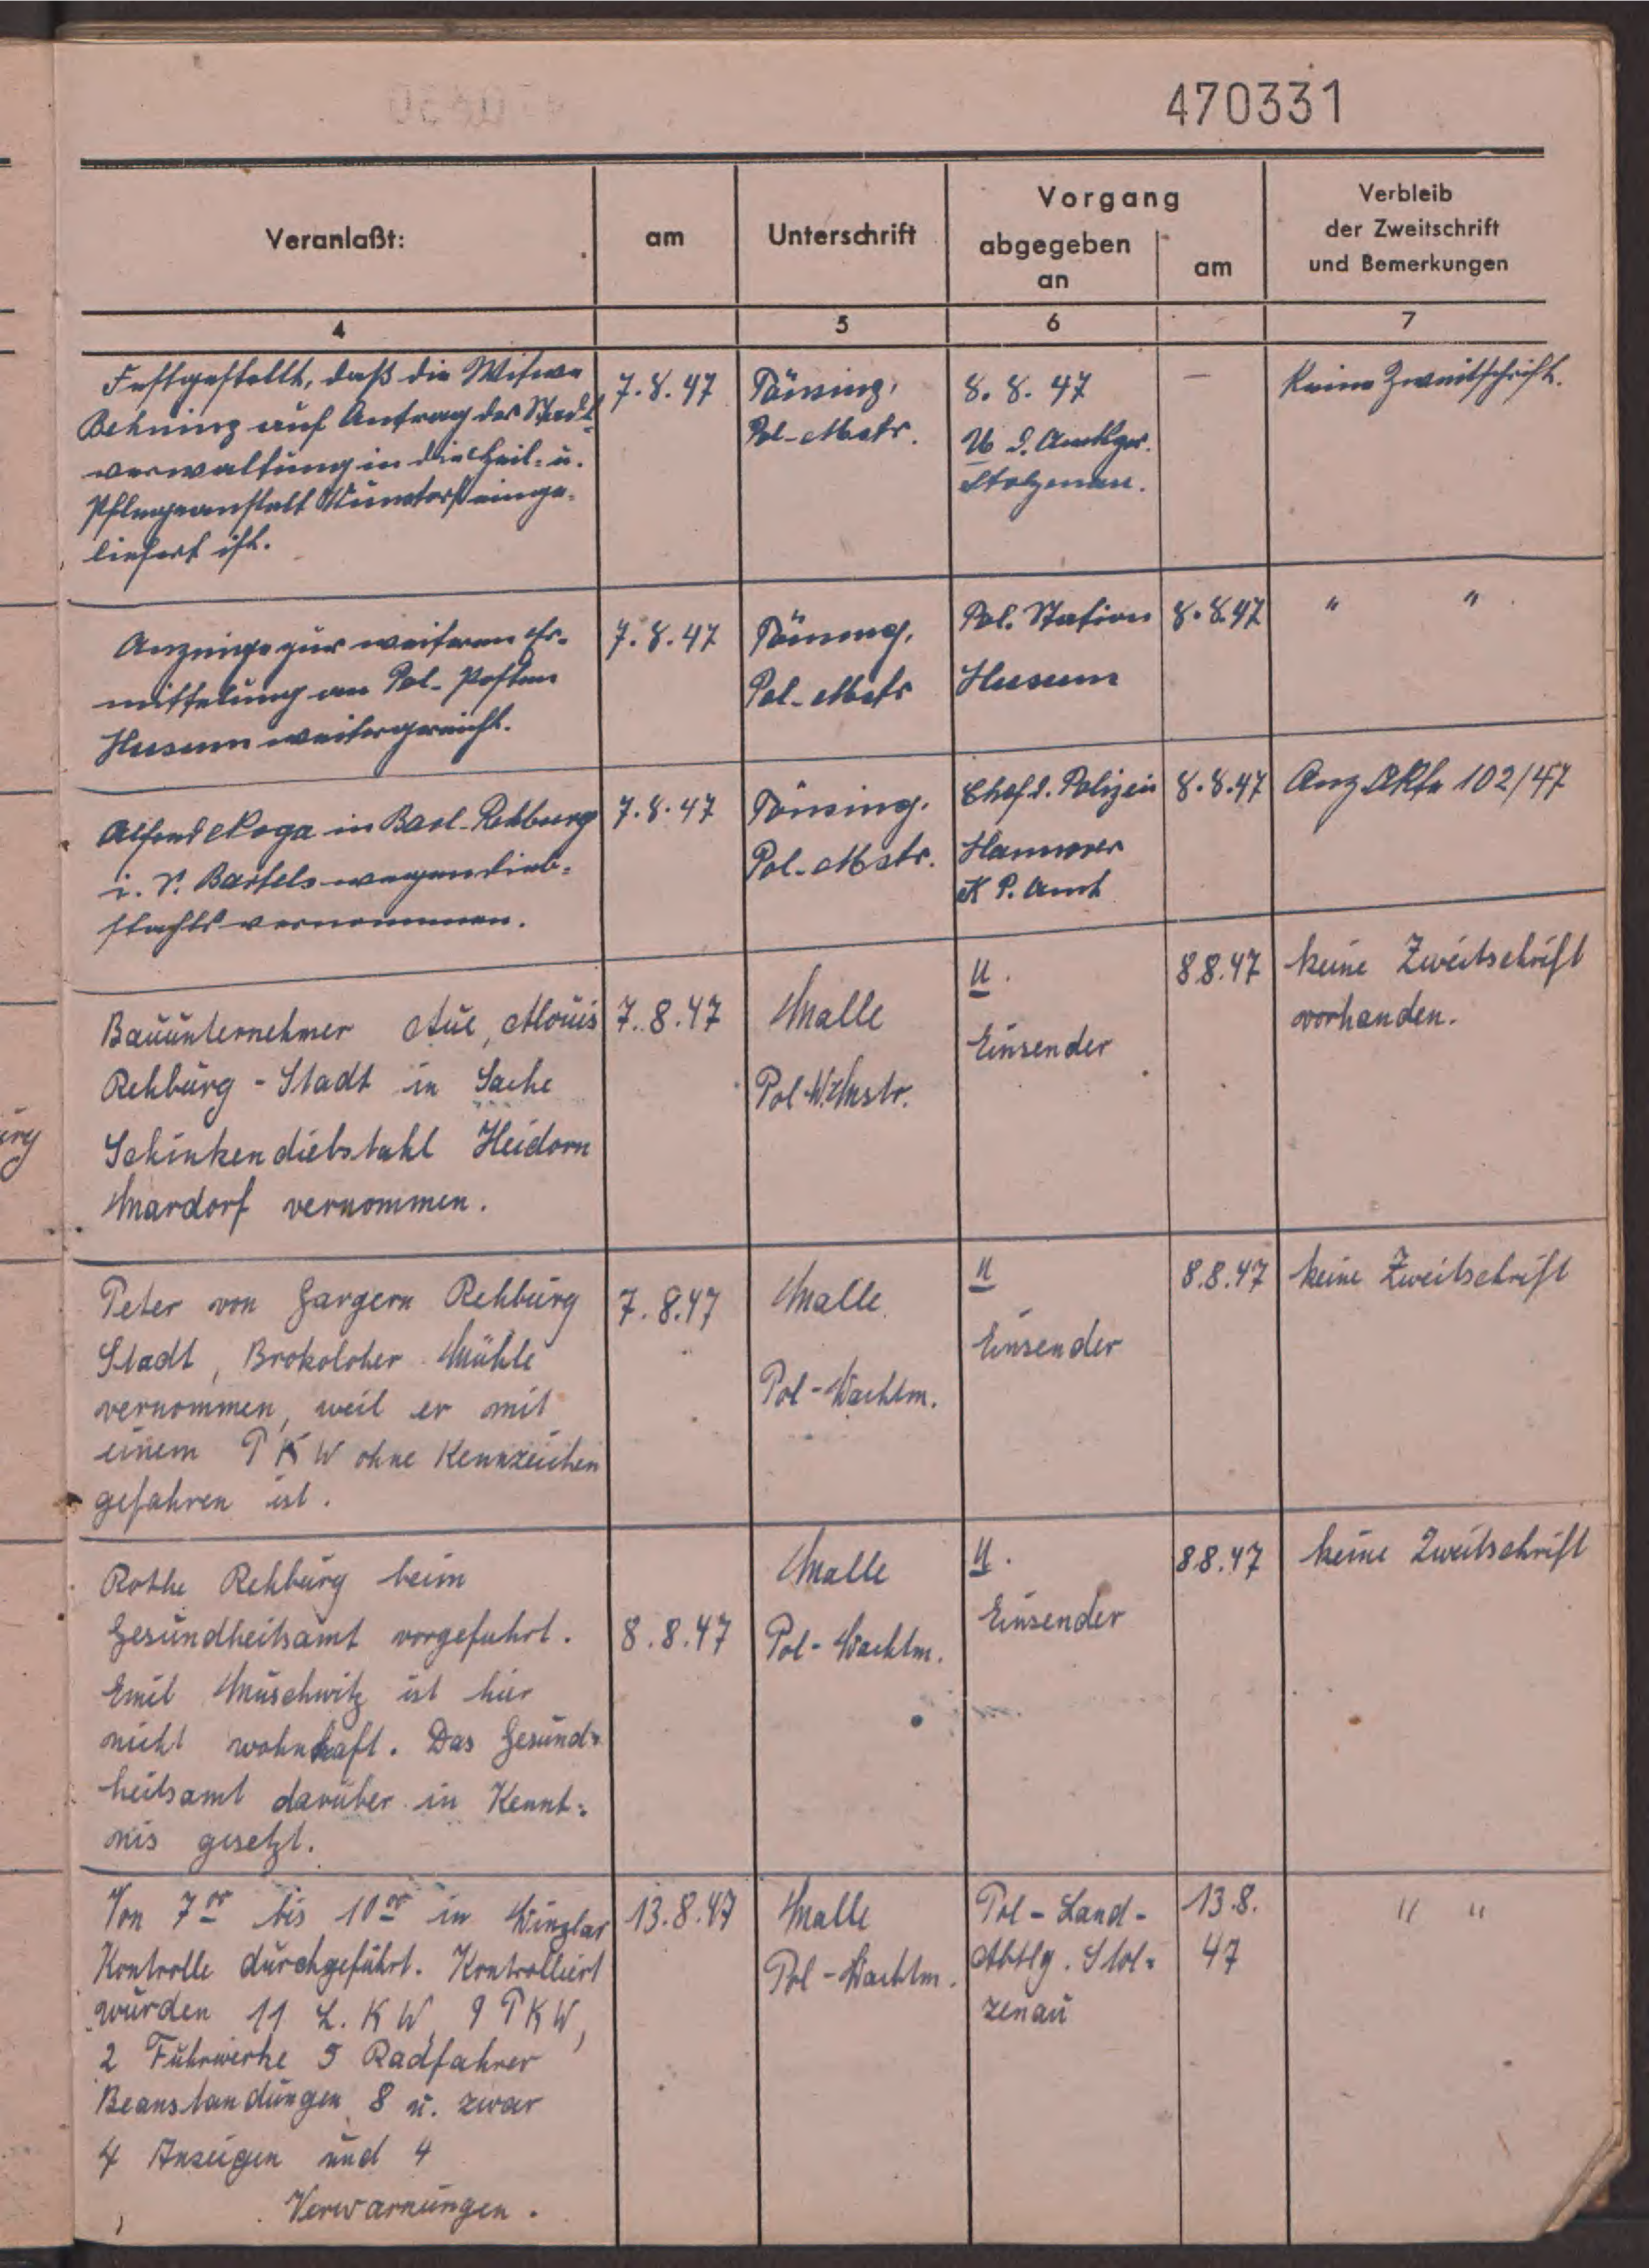 470331
Veranlaßt:
am
Unterschrift
Vorgang
abgegeben
an
am
Verbleib
der Zweitschrift
und Bemerkungen
4
5
6
7
Festgestellt, daß die Witwe
Behning auf Antrag der Stadt-
verwaltung in die Heil- u.
Pflegeanstalt Wunstorf einge-
liefert ist.
7.8.47
Pol-Mstr.
8. 8. 47
U
Stolzenau.
—
Keine Zweitschrift.
Anzeige zur weiteren Er-
mittelung an Pol-Posten
Husum weitergereicht.
7.8.47
Pol-Mstr
Pol. Station
Husum
8.8.47
" " .
in Bad-Rehburg
i. S. Bartels wegen Dieb-
stahls vernommen.
7.8.47
Pol-Mstr.
Chef d. Polizei
Hannover
K P. Amt
8.8.47
Anz. 102/47
Bauunternehmer Aue, Alouis
Rehburg - Stadt in Sache
Schinkendiebstahl Heidorn
Mardorf vernommen.
7.8.47
Malle
Pol-W.Mstr.
U.
Einsender
8 8.47
keine Zweitschrift
vorhanden.
Peter von Gargern Rehburg
Stadt, Brokoloher Mühle
vernommen, weil er mit
einem P K W ohne Kennzeichen
gefahren ist.
7.8.47
Malle
Pol-Wachtm.
U
Einsender
8.8.47
keine Zweitschrift
Rothe Rehburg beim
Gesundheitsamt vorgefuhrt.
Emil Muschwitz ist hier
nicht wohnhaft. Das Gesund-
heitsamt darüber in Kennt-
nis gesetzt.
8.8.47
Malle
Pol-Wachtm.
U.
Einsender
8 8.47
keine Zweitschrift
Von 7 00 bis 10 00 in Winzlar
Kontrolle durchgeführt. Kontrolliert
wurden 11 L. K W, 9 P K W,
2 Fuhrwerke 5 Radfahrer
Beanstandungen 8 u. zwar
4 Anzeigen und 4
Verwarnungen.
13.8.47
Malle
Pol-Wachtm.
Pol-Land-
Abtlg. Stol-
zenau
13.8.
47
" "